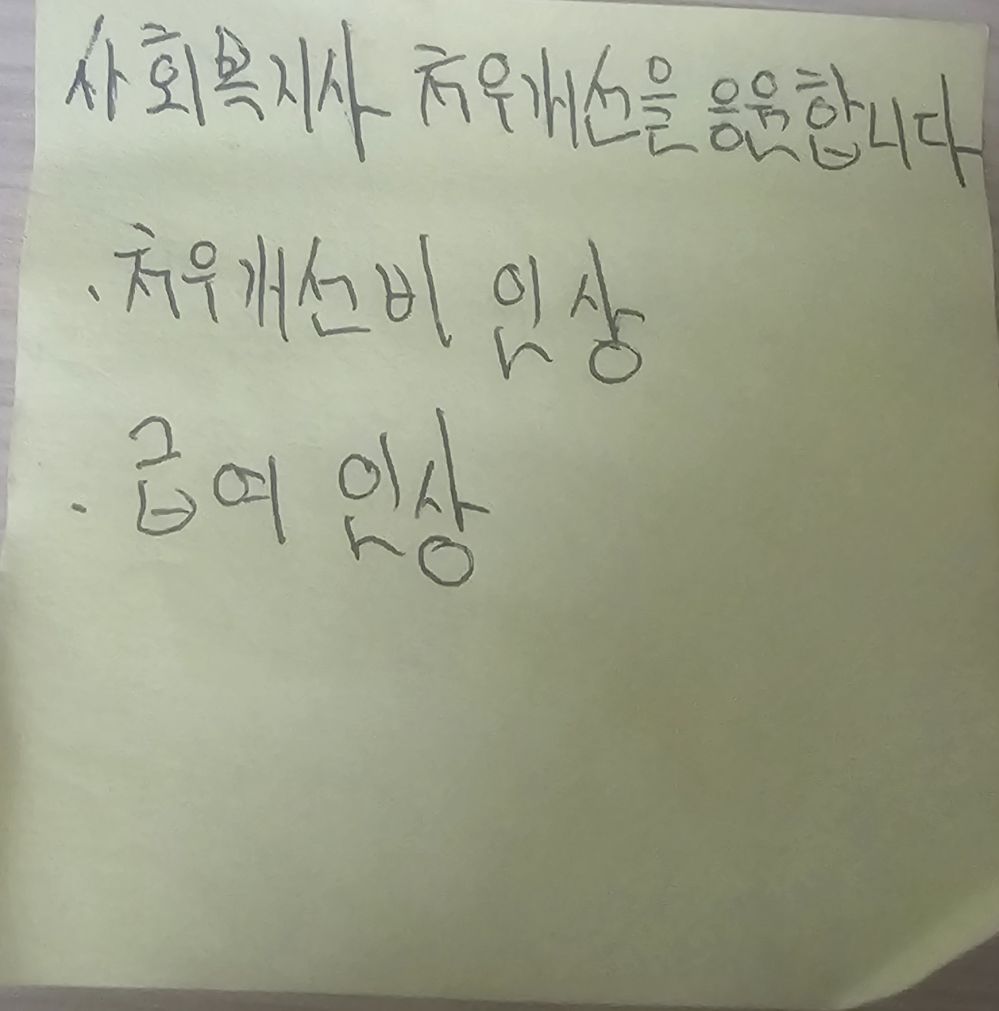 사회복지사 처우개선을 응원합니다
. 처우개선비 인상
. 급여 인상